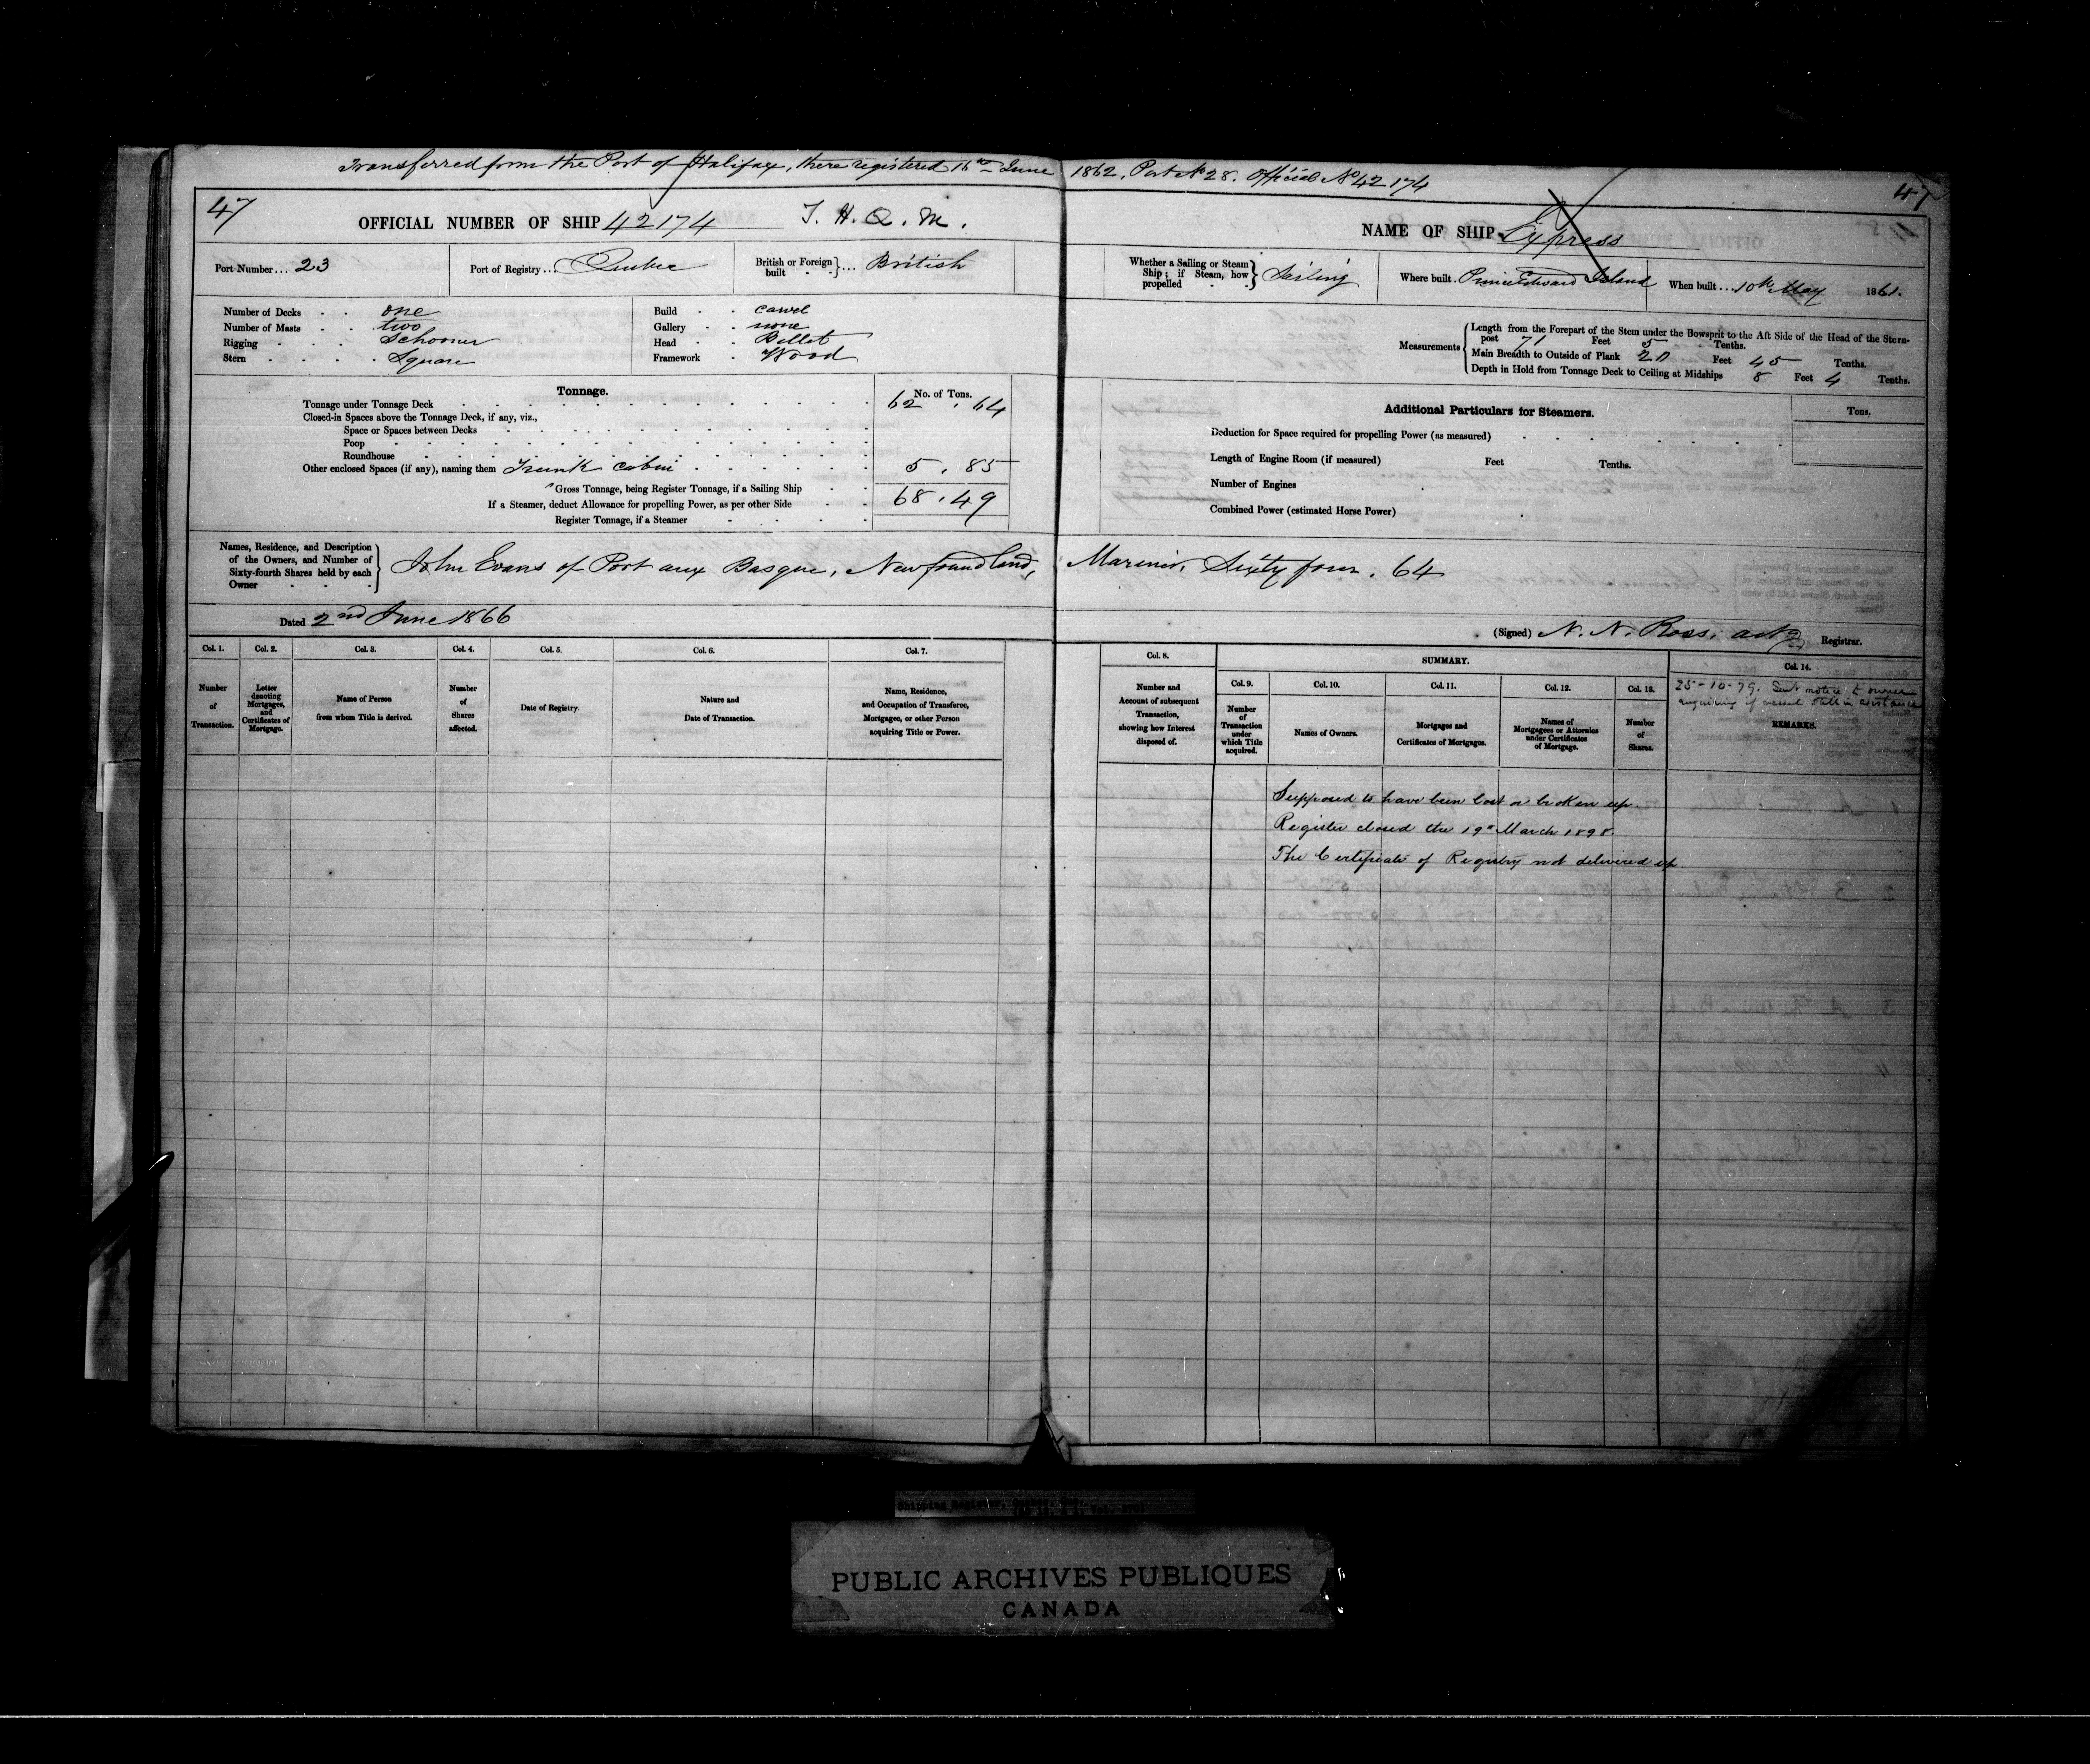 Transferred from the Port of Halifax, there registered 16th June 1862. Port No 28. Official No 42174
47
47
OFFICIAL NUMBER OF SHIP 42174 T. H. Q. M.
NAME OF SHIP Express
Port Number... 23
Port of Registry... Quebec
British or Foreign built }... British
Whether a Sailing or Steam Ship; if Steam, how propelled } Sailing
Where built. Prince Edward Island
When built... 10th May 1861.
Number of Decks one
Number of Masts two
Rigging Schooner
Stern Square
Build carvel
Gallery none
Head Billet
Framework Wood
Measurements
Length from the Forepart of the Stem under the Bowsprit to the Aft Side of the Head of the Stern-
post 71 Feet 5 Tenths.
Main Breadth to Outside of Plank 20 Feet 45 Tenths.
Depth in Hold from Tonnage Deck to Ceiling at Midships 8 Feet 4 Tenths.
Tonnage.
No. of Tons.
Tonnage under Tonnage Deck 62 . 64
Closed-in Spaces above the Tonnage Deck, if any, viz.,
Space or Spaces between Decks
Poop
Roundhouse
Other enclosed Spaces (if any), naming them Trunk cabin 5 . 85
Gross Tonnage, being Register Tonnage, if a Sailing Ship 68 . 49
If a Steamer, deduct Allowance for propelling Power, as per other Side
Register Tonnage, if a Steamer
Additional Particulars for Steamers.
Tons.
Deduction for Space required for propelling Power (as measured)
Length of Engine Room (if measured) Feet Tenths.
Number of Engines
Combined Power (estimated Horse Power)
Names, Residence, and Description
of the Owners, and Number of
Sixty-fourth Shares held by each
Owner
John Evans of Port aux Basque, Newfoundland, Mariner, Sixty four. 64
Dated 2nd June 1866
(Signed) N. N. Ross, actg Registrar.
Col. 1.
Number
of
Transaction.
Col. 2.
Letter
denoting
Mortgages,
and
Certificates of
Mortgage.
Col. 3.
Name of Person
from whom Title is derived.
Col. 4.
Number
of
Shares
affected.
Col. 5.
Date of Registry.
Col. 6.
Nature and
Date of Transaction.
Col. 7.
Name, Residence,
and Occupation of Transferee,
Mortgagee, or other Person
acquiring Title or Power.
Col. 8.
Number and
Account of subsequent
Transaction,
showing how Interest
disposed of.
SUMMARY.
Col. 9.
Number
of
Transaction
under
which Title
acquired.
Col. 10.
Names of Owners.
Col. 11.
Mortgages and
Certificates of Mortgages.
Col. 12.
Names of
Mortgagees or Attornies
under Certificates
of Mortgage.
Col. 13.
Number
of
Shares.
Col. 14.
25-10-79. Sent notice to owner
enquiring if vessel still in existence
REMARKS.
Supposed to have been lost or broken up.
Register closed the 19th March 1898.
The Certificate of Registry not delivered up.
Shipping Register, Quebec, Que.
PUBLIC ARCHIVES PUBLIQUES
CANADA